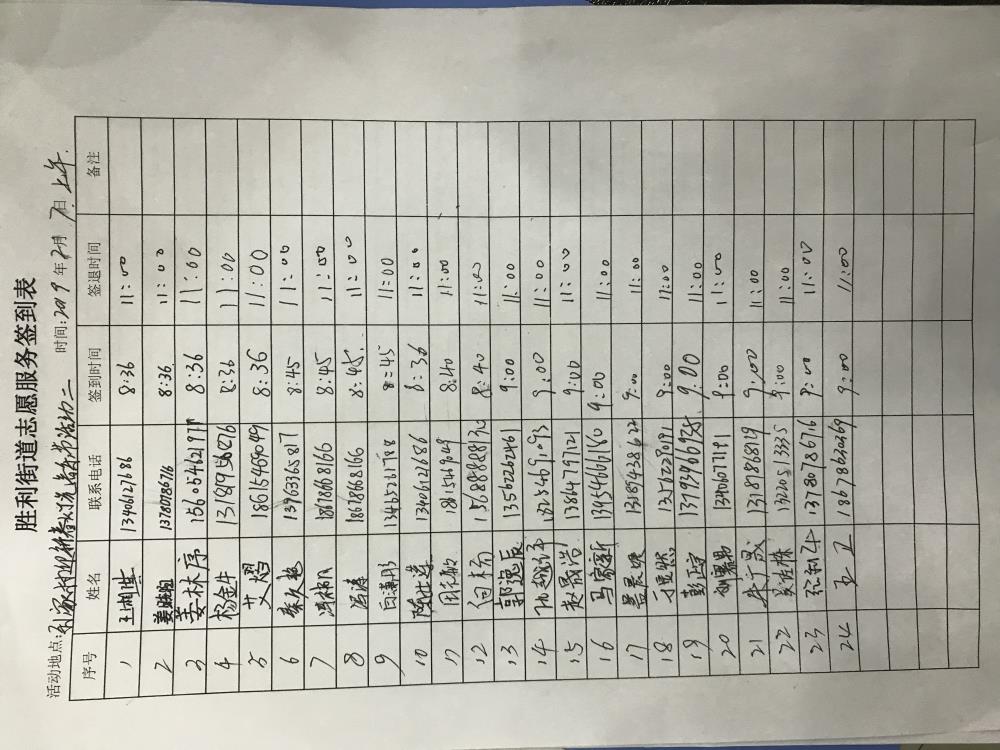 胜利街道志愿服务签到表
活动地点: 时间: 2019 年 2 月 7 日 上午.
序号 姓名 联系电话 签到时间 签退时间 备注
1 13406127686 8:36 11:00
2 姜晓旭 13780786716 8:36 11:00
3 姜林序 15605462197 8:36 11:00
4 杨金牛 13181956876 8:36 11:00
5 艾熠 18615469049 8:36 11:00
6 秦久越 13963365817 8:45 11:00
7 冯淑凤 18678668166 8:45 11:00
8 冯涛 18678668166 8:45. 11:00
9 白潇彤 13465261788 8:45 11:00
10 陈世莲 13406127686 8:36 11:00
11 周长敏 18615469049 8:40 11:00
12 白杨 15688888130 8:40 11:00
13 郭逸辰 13562262461 9:00 11:00
14 孙越洋 18254691093 9:00 11:00
15 赵晟浩 13864797121 9:00 11:00
16 马家新 13954666180 9:00 11:00
17 13189438622 9:00 11:00
18 于昊然 13276228091 9:00 11:00
19 彭正宇 9:00 11:00
20 13406077191 9:00 11:00
21 牛广成 13181876819 9:00 11:00
22 吴佳姝 13220513335 9:00 11:00
23 13780786716 9:00 11:00
24 王卫 18678630269 9:00 11:00